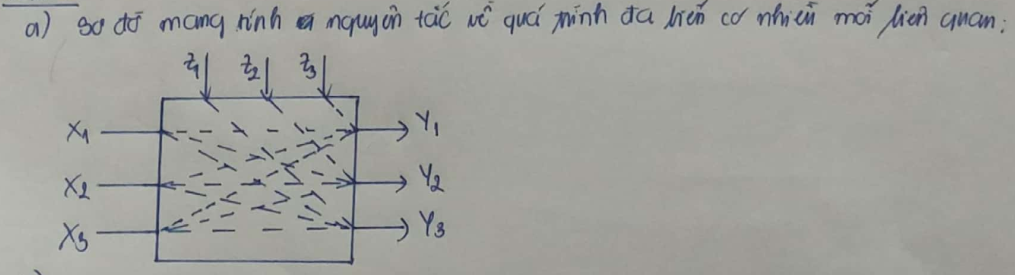 a) sơ đồ mang tính nguyên tắc về quá trình đa biến có nhiều mối liên quan:
Z1 Z2 Z3
X1 Y1
X2 Y2
X3 Y3